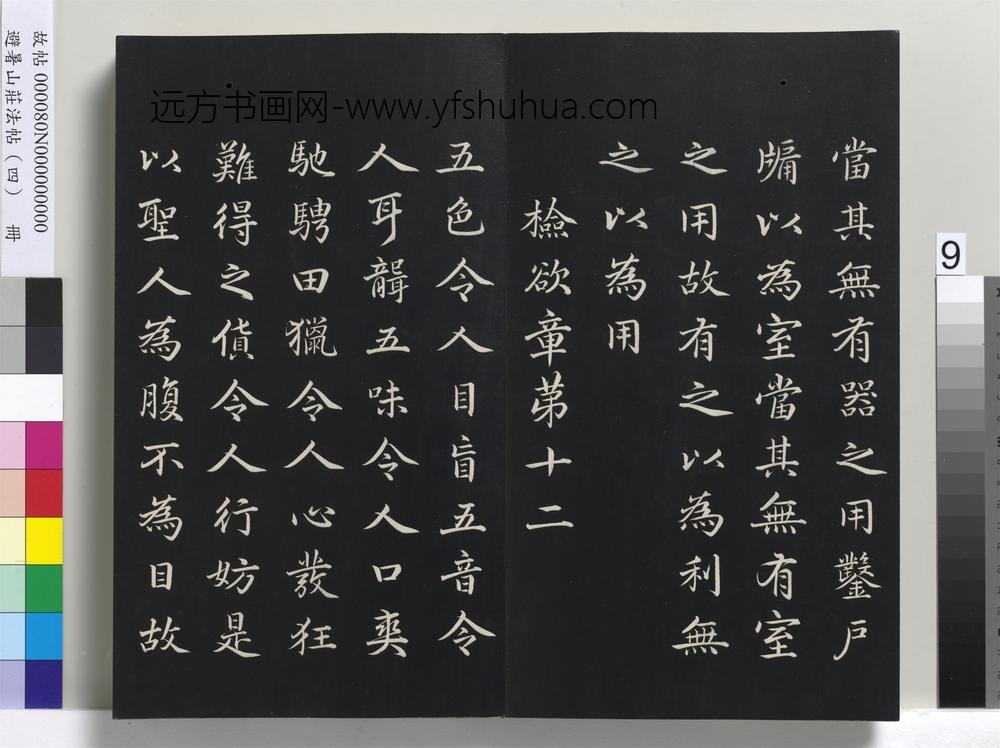 當其無有器之用鑿戶
牖以為室當其無有室
之用故有之以為利無
之以為用
檢欲章第十二
五色令人目盲五音令
人耳聾五味令人口爽
馳騁田獵令人心發狂
難得之貨令人行妨是
以聖人為腹不為目故
远方书画网-www.yfshuhua.com
故帖000080N000000000
避暑山莊法帖(四) 冊
9